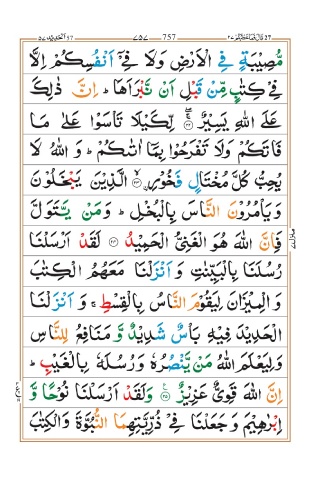 ۷۵۷ 757
مُّصِيْبَةٍ فِى الْاَرْضِ وَلَا فِىْٓ اَنْفُسِكُمْ اِلَّا
فِىْ كِتٰبٍ مِّنْ قَبْلِ اَنْ نَّبْرَاَهَا ؕ اِنَّ ذٰلِكَ
عَلَى اللّٰهِ يَسِيْرٌ ۟ۙ ۲۲ لِّكَيْلَا تَاْسَوْا عَلٰى مَا
فَاتَكُمْ وَلَا تَفْرَحُوْا بِمَاۤ اٰتٰٮكُمْ ؕ وَ اللّٰهُ لَا
يُحِبُّ كُلَّ مُخْتَالٍ فَخُوْرِ ۟ۙ ۲۳ اۨلَّذِيْنَ يَبْخَلُوْنَ
وَ يَاْمُرُوْنَ النَّاسَ بِالْبُخْلِ ؕ وَمَنْ يَّتَوَلَّ
فَاِنَّ اللّٰهَ هُوَ الْغَنِىُّ الْحَمِيْدُ ۲۴ لَقَدْ اَرْسَلْنَا
رُسُلَنَا بِالْبَيِّنٰتِ وَ اَنْزَلْنَا مَعَهُمُ الْكِتٰبَ
وَ الْمِيْزَانَ لِيَقُوْمَ النَّاسُ بِالْقِسْطِ ۚ وَ اَنْزَلْنَا
الْحَدِيْدَ فِيْهِ بَاْسٌ شَدِيْدٌ وَّ مَنَافِعُ لِلنَّاسِ
وَ لِيَعْلَمَ اللّٰهُ مَنْ يَّنْصُرُهٗ وَ رُسُلَهٗ بِالْغَيْبِ ؕ
اِنَّ اللّٰهَ قَوِىٌّ عَزِيْزٌ ۲۵ وَلَقَدْ اَرْسَلْنَا نُوْحًا وَّ
اِبْرٰهِيْمَ وَ جَعَلْنَا فِىْ ذُرِّيَّتِهِمَا النُّبُوَّةَ وَ الْكِتٰبَ